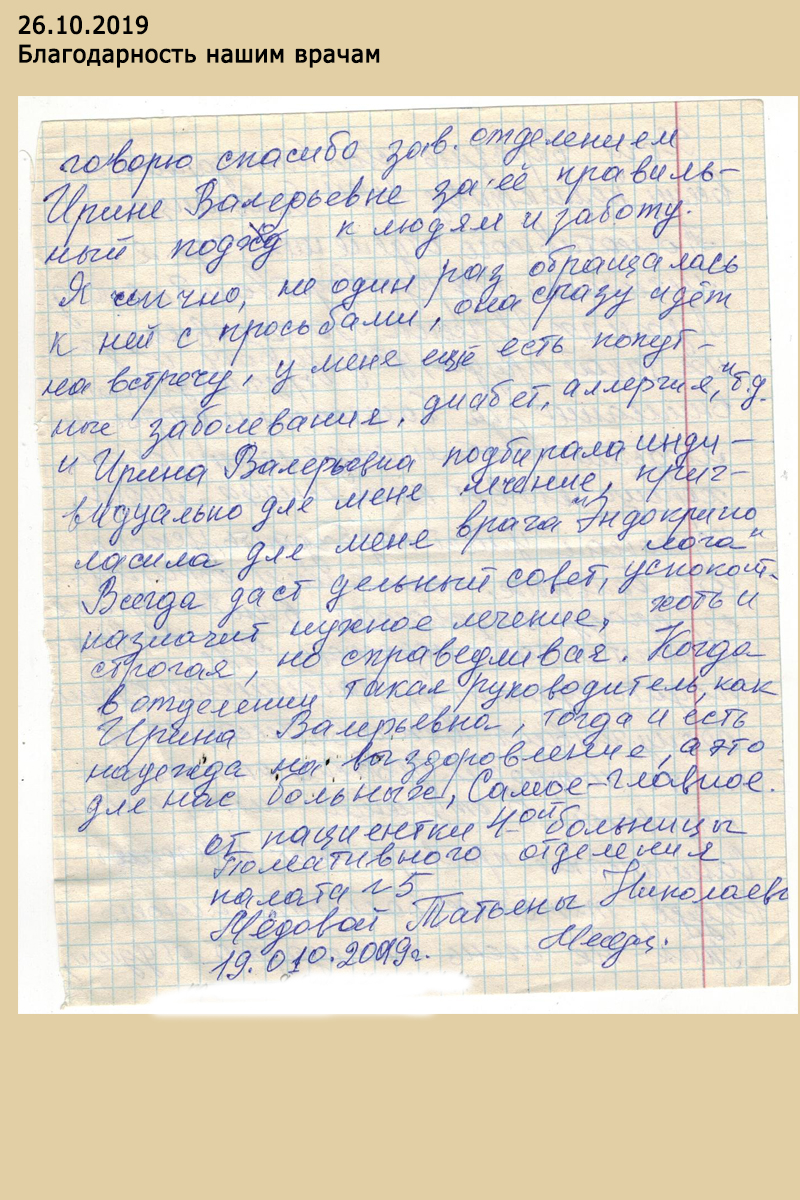 26.10.2019
Благодарность нашим врачам
говорю спасибо зав. отделением
Ирине Валерьевне за её правиль-
ный подход к людям и заботу.
Я лично, не один раз обращалась
к ней с просьбами, она сразу идёт
на встречу, у мене ещё есть попут-
ные заболевания, диабет, аллергия, и т.д.
и Ирина Валерьевна подбирала инди-
видуально для мене лечение, приг-
ласила для мене врача "Эндокрино
лога"
Всегда даст дельный совет, успокоит-
назначит нужное лечение, хоть и
строгая, но справедливая. Когда
в отделении такая руководитель, как
Ирина Валерьевна, тогда и есть
надежда на выздоровление, а это
для нас больных, Самое-главное.
от пациентки 4-ой больницы
отделения
палата №5
Мёдовой Татьяны Николаевн
19.010.2019г.